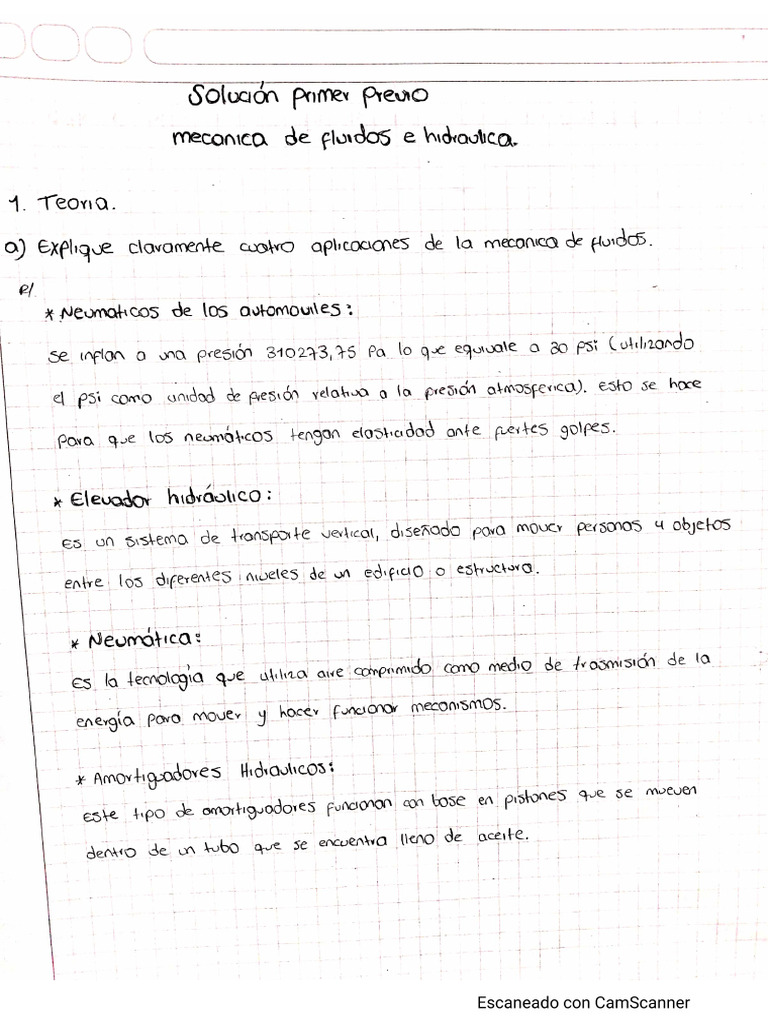 Solución primer previo
mecanica de fluidos e hidraulica.
1. Teoria.
a) Explique claramente cuatro aplicaciones de la mecanica de fluidos.
R/
* Neumaticos de los automoviles:
se inflan a una presión 310273,75 Pa lo que equivale a 30 psi (utilizando
el psi como unidad de presión relativa a la presión atmosferica). esto se hace
para que los neumáticos tengan elasticidad ante fuertes golpes.
* Elevador hidráulico:
Es un sistema de transporte vertical, diseñado para mover personas y objetos
entre los diferentes niveles de un edificio o estructura.
* Neumática:
Es la tecnología que utiliza aire comprimido como medio de trasmisión de la
energía para mover y hacer funcionar mecanismos.
* Amortiguadores Hidraulicos:
Este tipo de amortiguadores funcionan con base en pistones que se mueven
dentro de un tubo que se encuentra lleno de aceite.
Escaneado con CamScanner